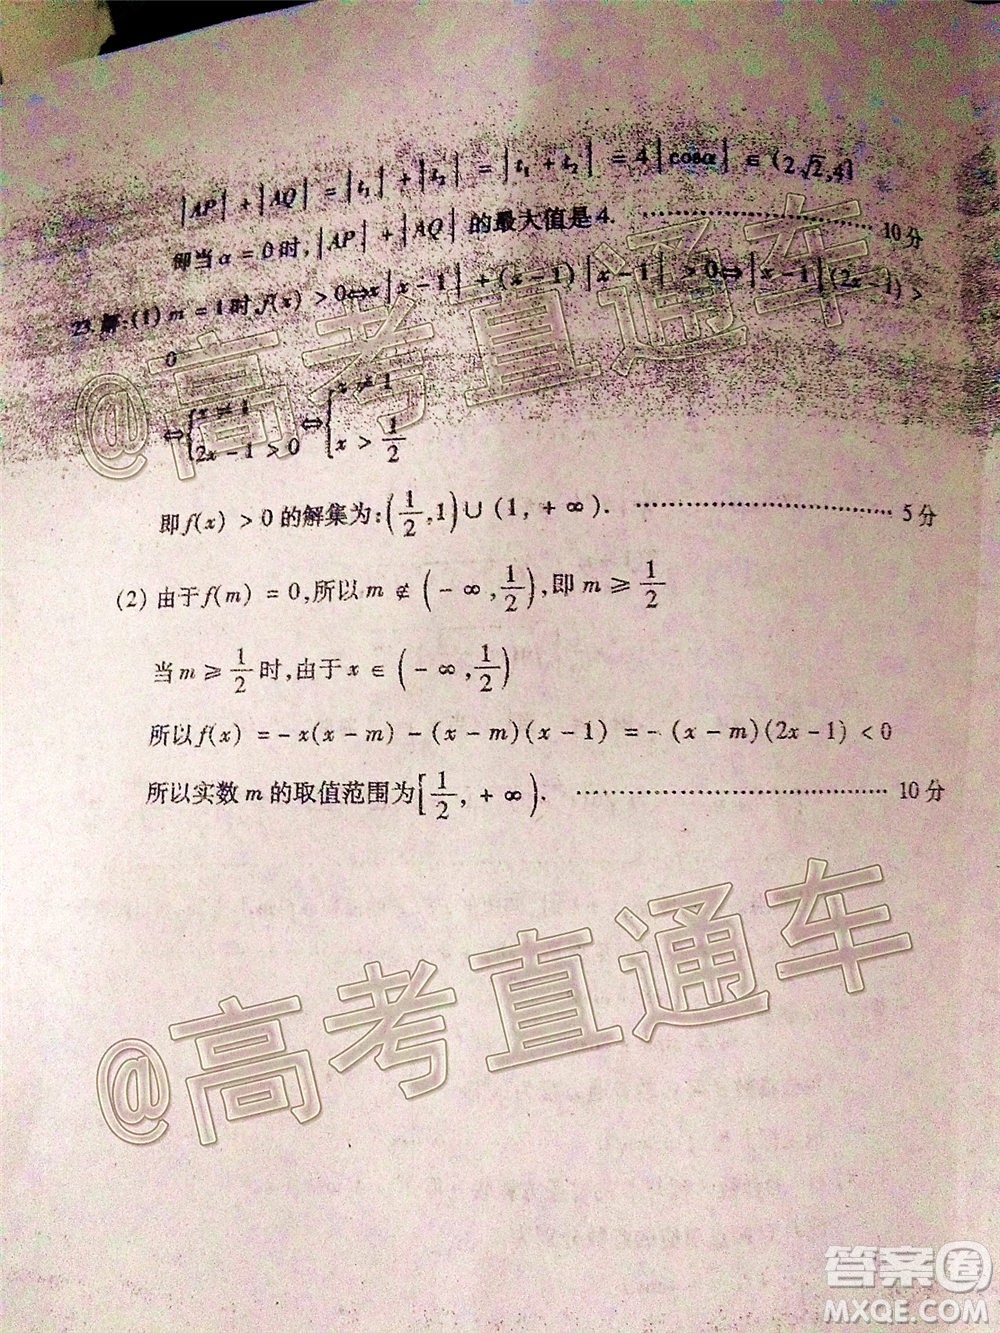 |AP| + |AQ| = |t₁| + |t₂| = |t₁ + t₂| = 4|cosα| ∈ (2√2,4]
即当 α = 0时,|AP| + |AQ| 的最大值是 4. ……………………………… 10分
23.解:(1) m = 1时,f(x) > 0⇔x|x − 1| + (x − 1)|x − 1| > 0⇔|x − 1|(2x − 1) >
0
⇔{x ≠ 1 2x − 1 > 0 ⇔{x ≠ 1 x > 1/2
即 f(x) > 0 的解集为:(1/2,1) ∪ (1, + ∞). ……………………………… 5分
(2) 由于 f(m) = 0,所以 m ∉ (− ∞,1/2),即 m ⩾ 1/2
当 m ⩾ 1/2 时,由于 x ∈ (− ∞,1/2)
所以 f(x) = − x(x − m) − (x − m)(x − 1) = − (x − m)(2x − 1) < 0
所以实数 m 的取值范围为[1/2, + ∞). ……………………………… 10分
@高考直通车
@高考直通车
答案圈
MXQE.COM